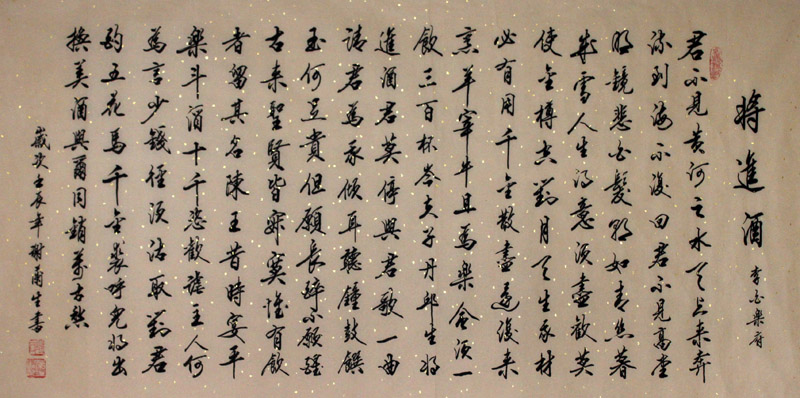 将進酒
李白樂府
君不見黄河之水天上来奔
流到海不復回君不見高堂
明鏡悲白髮朝如青丝暮
成雪人生得意須盡歡莫
使金樽空對月天生我材
必有用千金散盡還復来
烹羊宰牛且為樂會須一
飲三百杯岑夫子丹邱生将
進酒君莫停與君歌一曲
請君為我倾耳聽鐘鼓饌
玉何足貴但願長醉不願醒
古来聖賢皆寂寞惟有飲
者留其名陳王昔時宴平
樂斗酒十千恣歡謔主人何
為言少錢徑須沽取對君
酌五花馬千金裘呼兒将出
换美酒與爾同銷萬古愁
歲次壬辰年謝生書